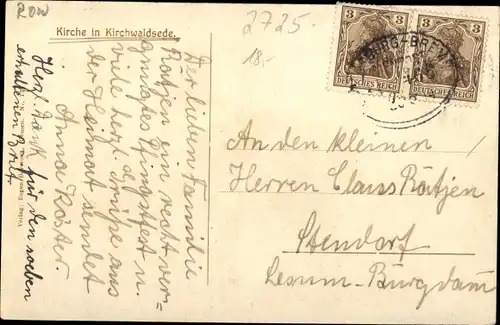 ROW
2725.
18,-
Kirche in Kirchwaldsede.
3
3
DEUTSCHES REICH
DEUTSCHES REICH
Der lieben Familie
Rätjen ein recht ver=
gnügtes Pfingstfest u.
viele herzl. Grüße aus
der Heimat sendet
Anna Röster.
Herzl. Dank für den soeben
erhaltenen Brief
An den kleinen
Herren Claus Rätjen
Stendorf
Lesum-Burgdam